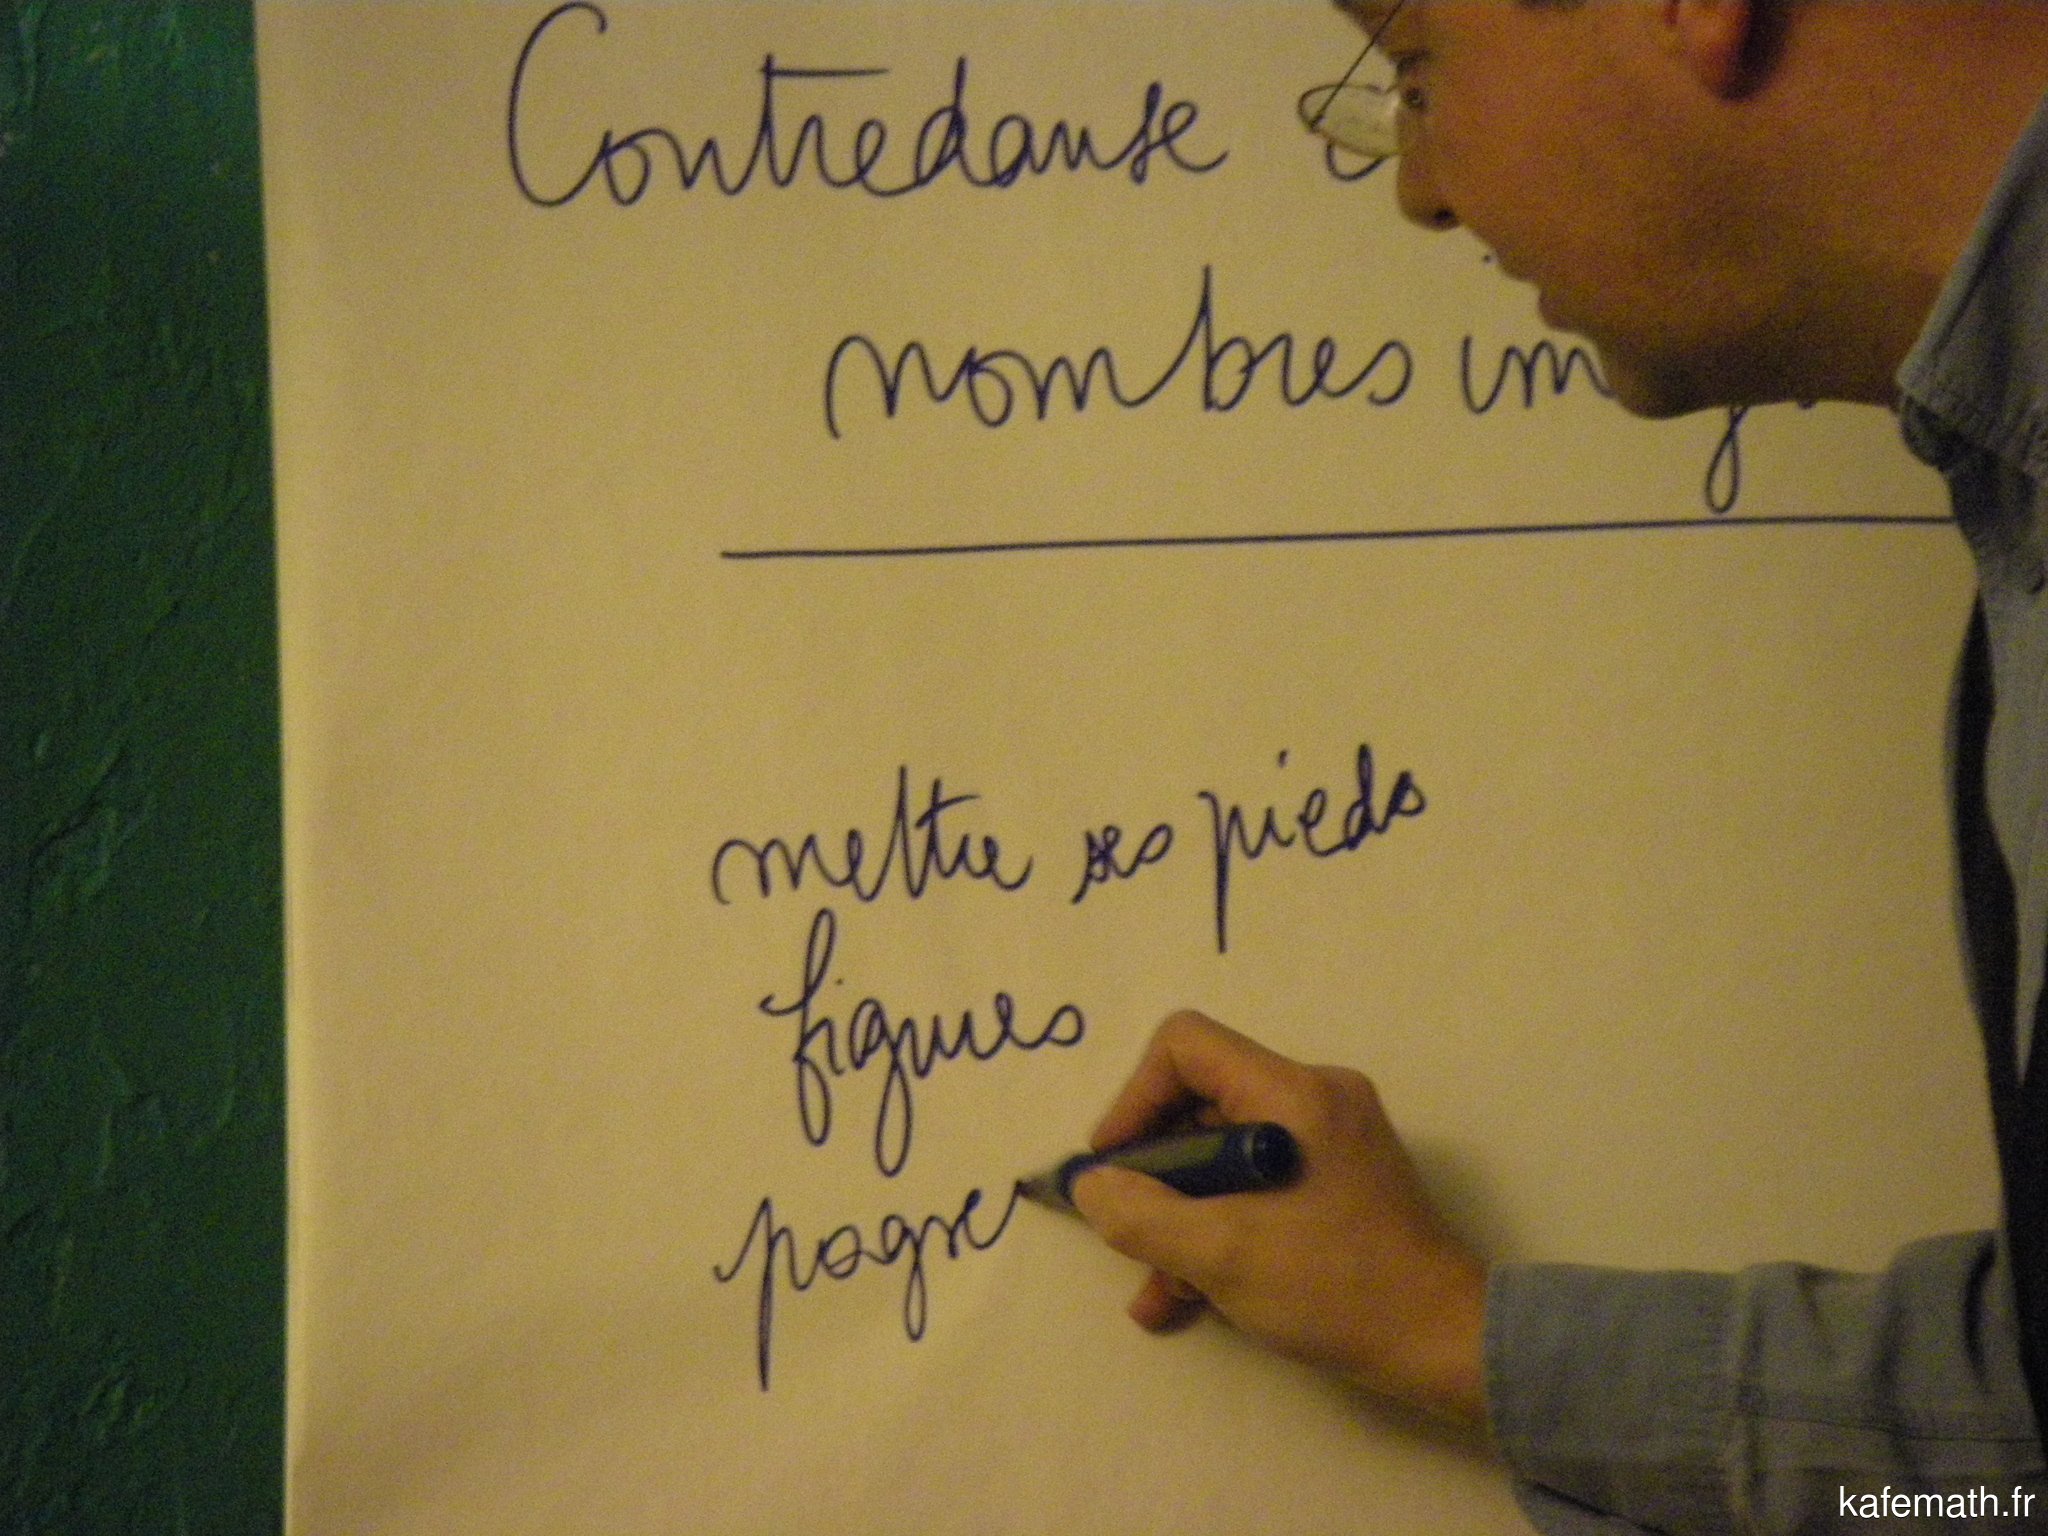 Contredanse
nombres imag
mettre ses pieds
figures
progre
kafemath.fr